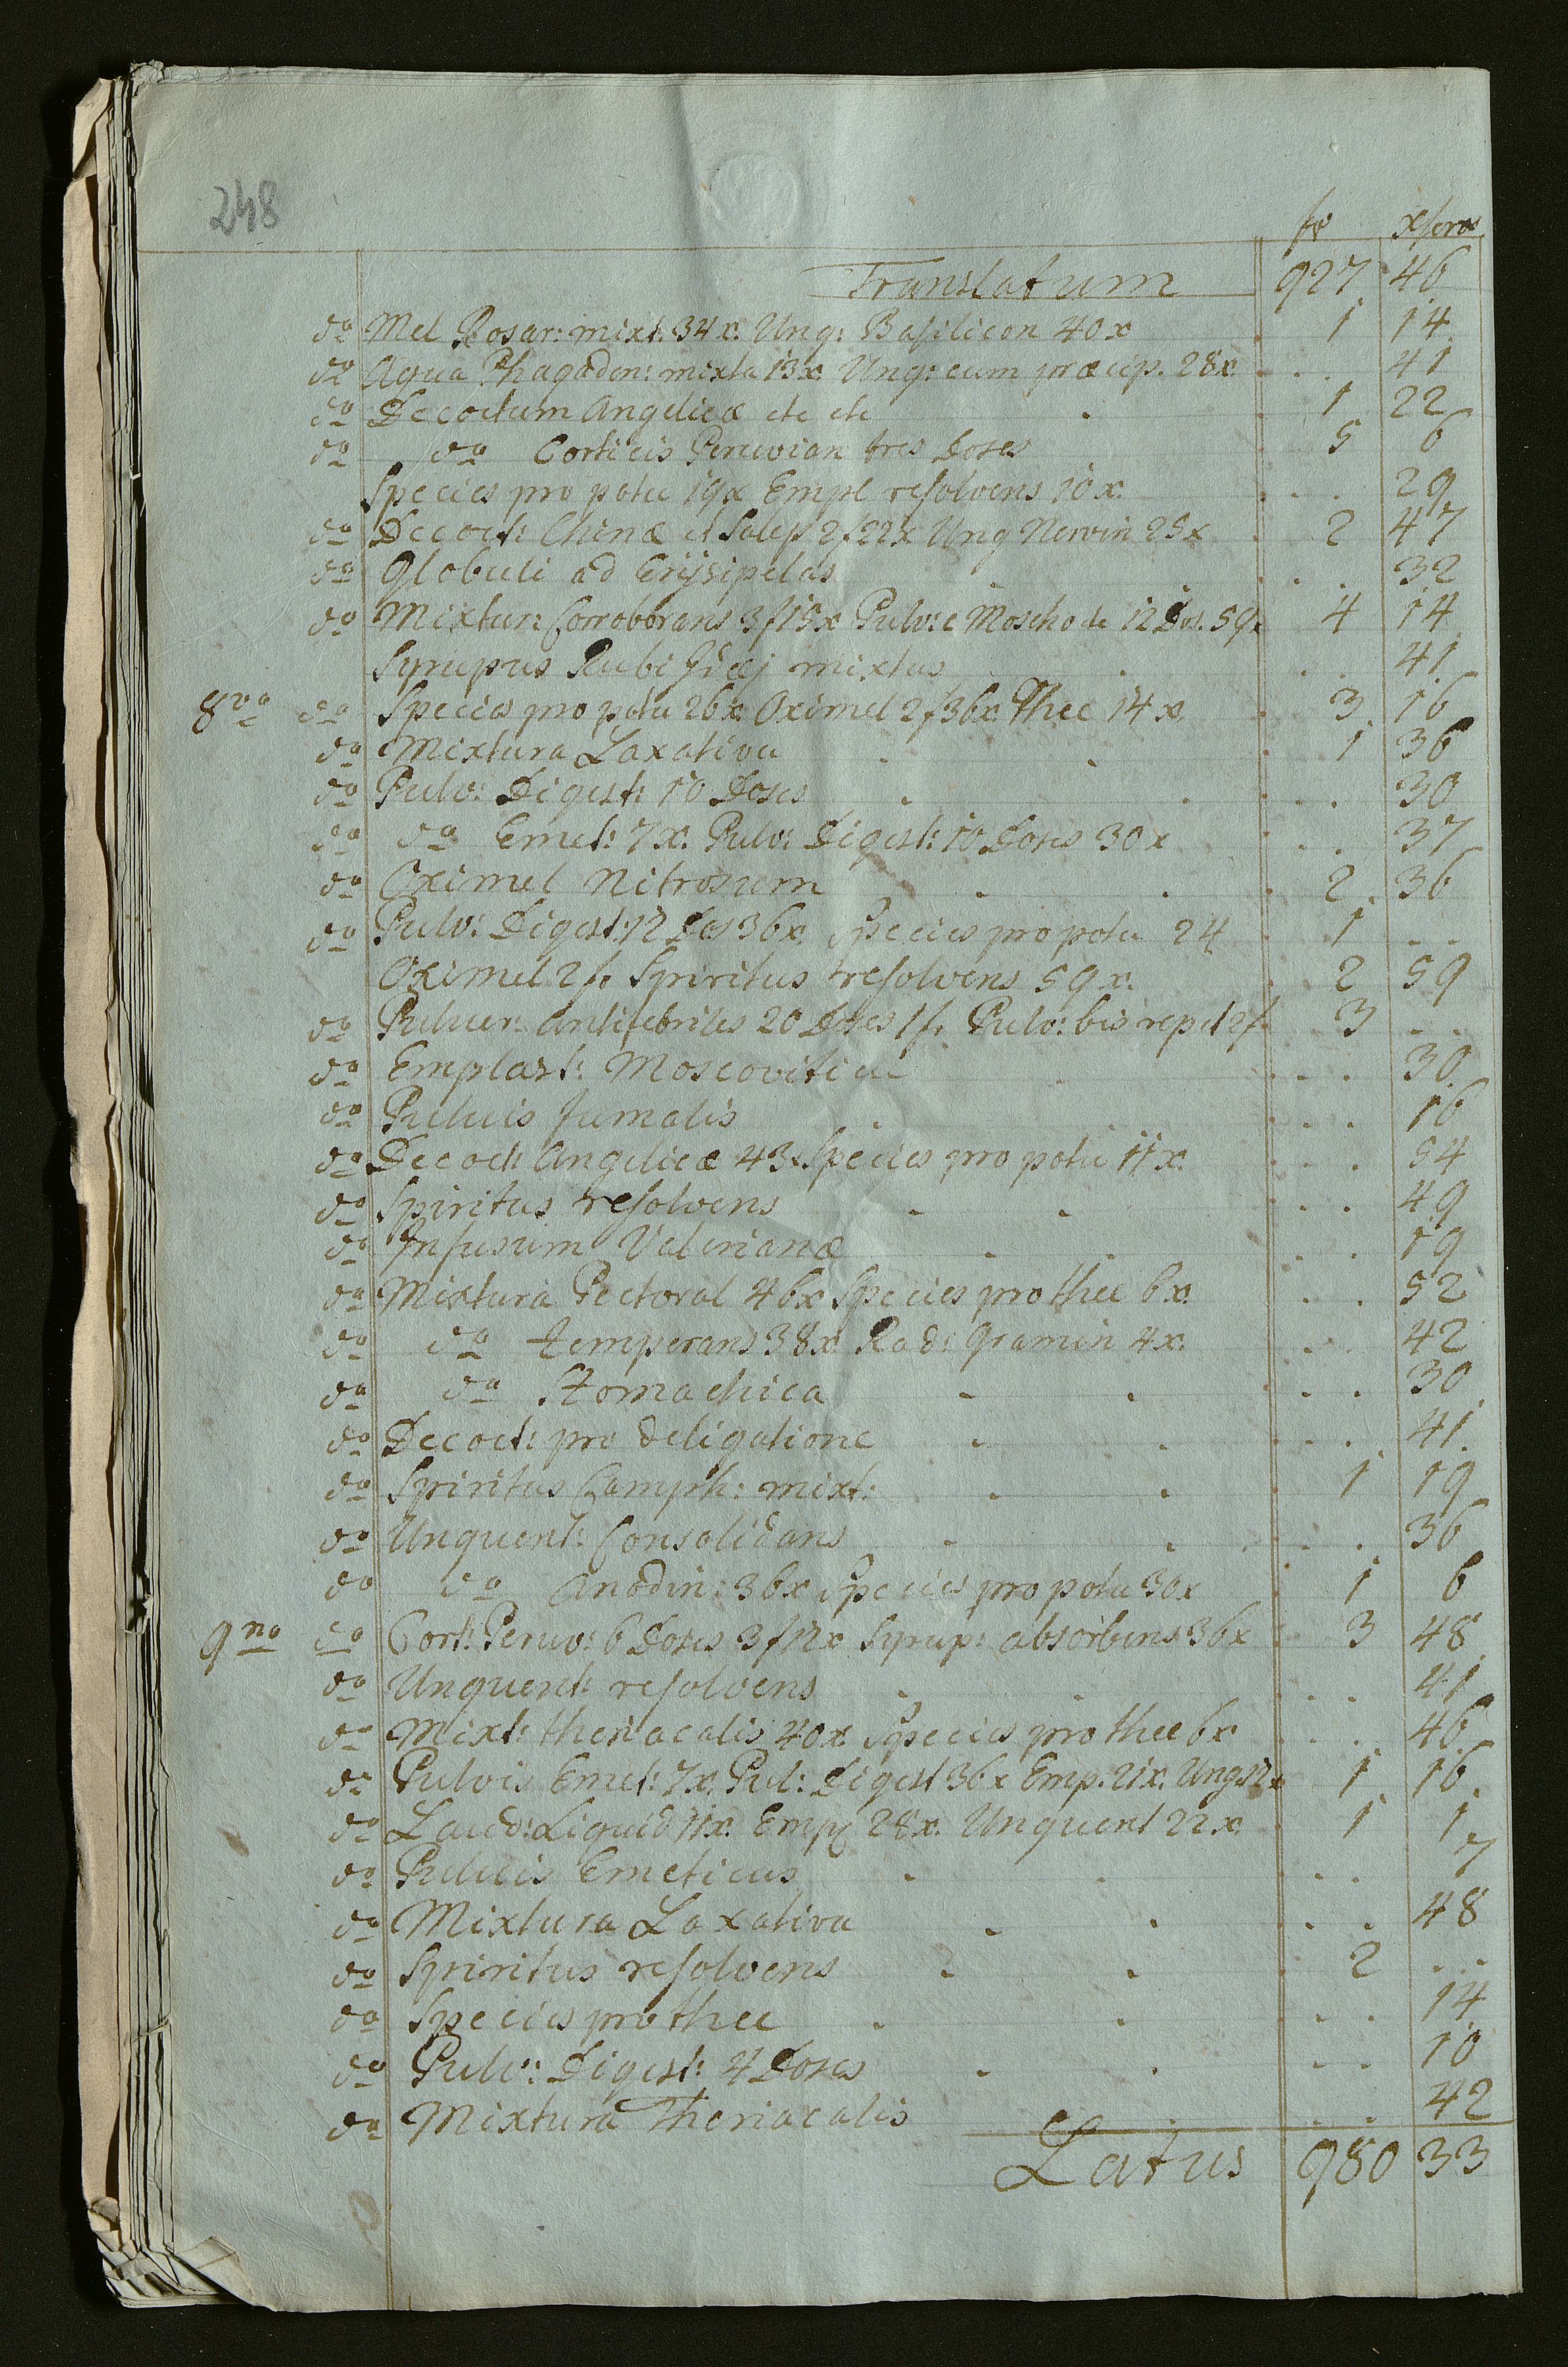 248
fr xferos
Translatum 927 46
do Mel Rosar: mixt: 34x. Ung: Basilicon 40x 1 14
do Aqua Phagaden: mixta 13x Ung: cum præcip. 28x 41
do Decoctum Angelicæ etc etc 1 22
do do Corticis Peruvian tres Doses 5 6
Species pro potu 19x Empl resolvens 10x. 29
do Decoct: Chinæ et Salep 2f22x Ung Nervin 25x 2 47
do Globuli ad Erÿsipelas 32
do Mixtur: Corroborans 3f15x Pulv: c Moscho de 12 Dos. 59x 4 14
Syrupus Rubi Idæj mixtus 41
8vo do Species pro potu 26x Oximel 2f36x Thee 14x 3 16
do Mixtura Laxativa 1 36
do Pulv: Digest: 10 Doses 30
do do Emet: 7x. Pulv: Digest: 10 Doses 30x 37
do Oximel Nitrosum 2 36
do Pulv: Digest: 12 Dos 36x Species pro potu 24 1 ..
Oximel 2f. Spiritus resolvens 59x. 2 59
do Pulver: Antifebriles 20 Doses 1f. Pulv: bis repet 2f 3 ..
do Emplast: Moscoviticu 30
do Pulvis fumalis 16
do Decoct: Angelicæ 43x Species pro potu 11x. 54
do Spiritus resolvens 49
do Infusum Valerianæ 19
do Mixtura Pectoral 46x Species pro thee 6x. 52
do do temperans 38x Rad: Gramin 4x. 42
do do Stomachica 30
do Decoct: pro deligatione 41
do Spiritus Camph: mixt: 1 19
do Unguent: Consolidans 36
do do Anodin: 36x Species pro potu 30x 1 6
9no do Cort: Peruv: 6 Doses 3f12x Syrup: absorbens 36x 3 48
do Unguent: resolvens 41
do Mixt: theriacalis 40x Species pro thee 6x 46
do Pulvis Emet: 7x. Pul: Digest 36x Emp. 21x. Ung 12x 1 16
do Laud: Liquid 11x. Empl 28x. Unguent 22x 1 1
do Pulvis Emeticus 7
do Mixtura Laxativa 48
do Spiritus resolvens 2 ...
do Species pro thee 14
do Pulv: Digest: 4 Doses 10
do Mixtura Theriacalis 42
Latus 980 33